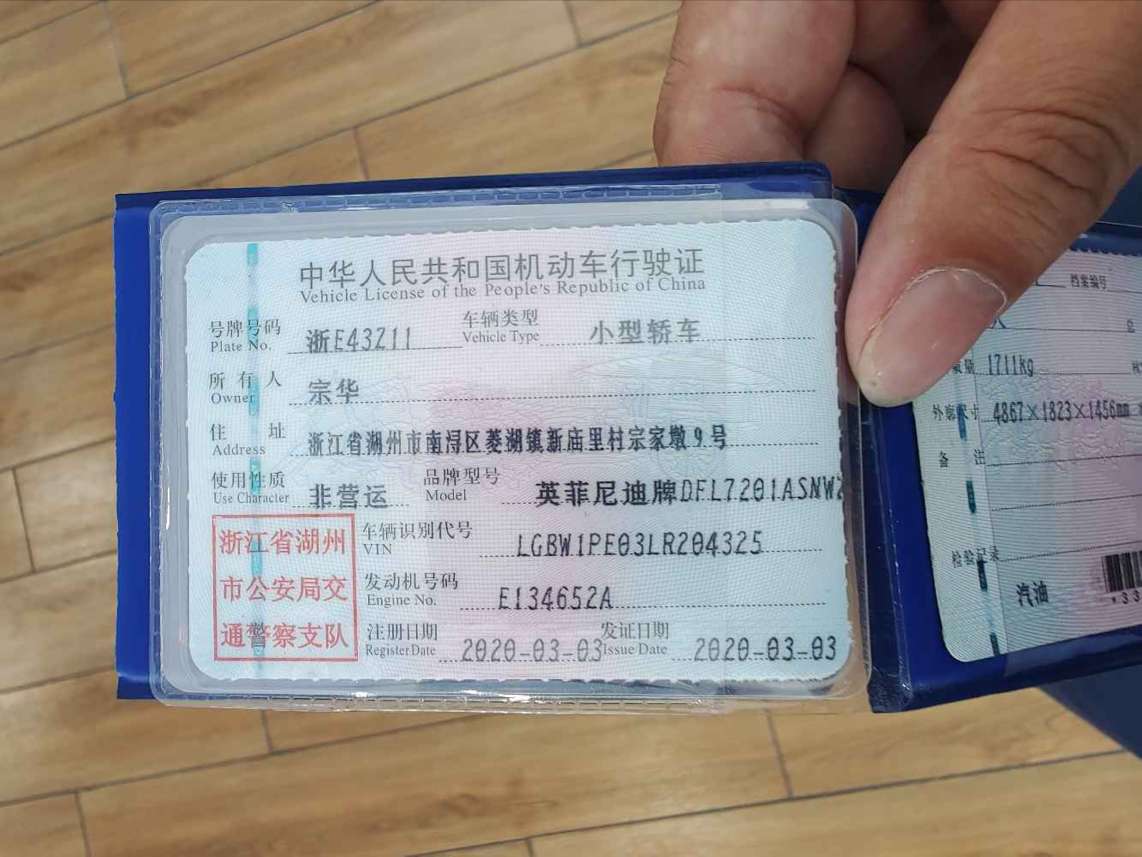 中华人民共和国机动车行驶证
Vehicle License of the People's Republic of China
号牌号码 浙E43Z11 车辆类型 小型轿车
Plate No. Vehicle Type
所有人 宗华
Owner
住址 浙江省湖州市南浔区菱湖镇新庙里村宗家墩9号
Address
使用性质 非营运 品牌型号 英菲尼迪牌DFL7201ASNW2
Use Character Model
浙江省湖州
市公安局交
通警察支队
车辆识别代号 LGBW1PE03LR204325
VIN
发动机号码 E134652A
Engine No.
注册日期 2020-03-03 发证日期 2020-03-03
Register Date Issue Date
档案编号
质量 1711kg
外廓尺寸 4867×1823×1456mm
备注
检验记录
汽油